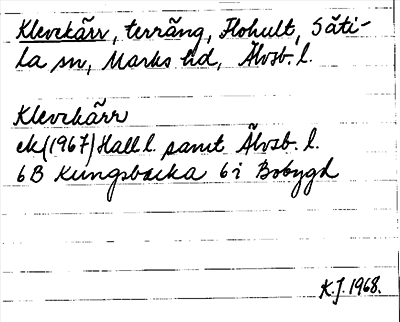 Klevekärr, terräng, Flohult, Säti-
la sn, Marks hd, Älvsb. l.
Klevekärr
ek (1967) Hall l. samt Älvsb. l.
6B Kungsbacka 6i Bobygd
K.J. 1968.